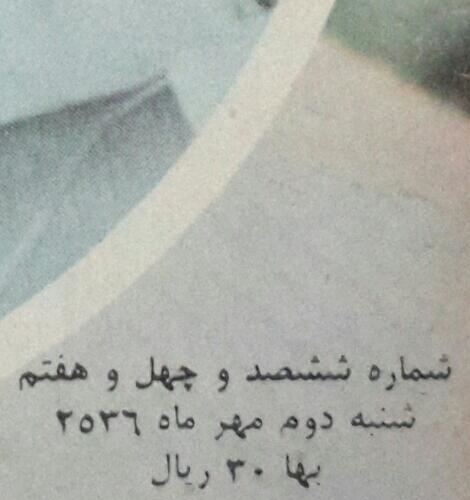 شماره ششصد و چهل و هفتم
شنبه دوم مهر ماه ۲۵۳۶
بها ۳۰ ریال